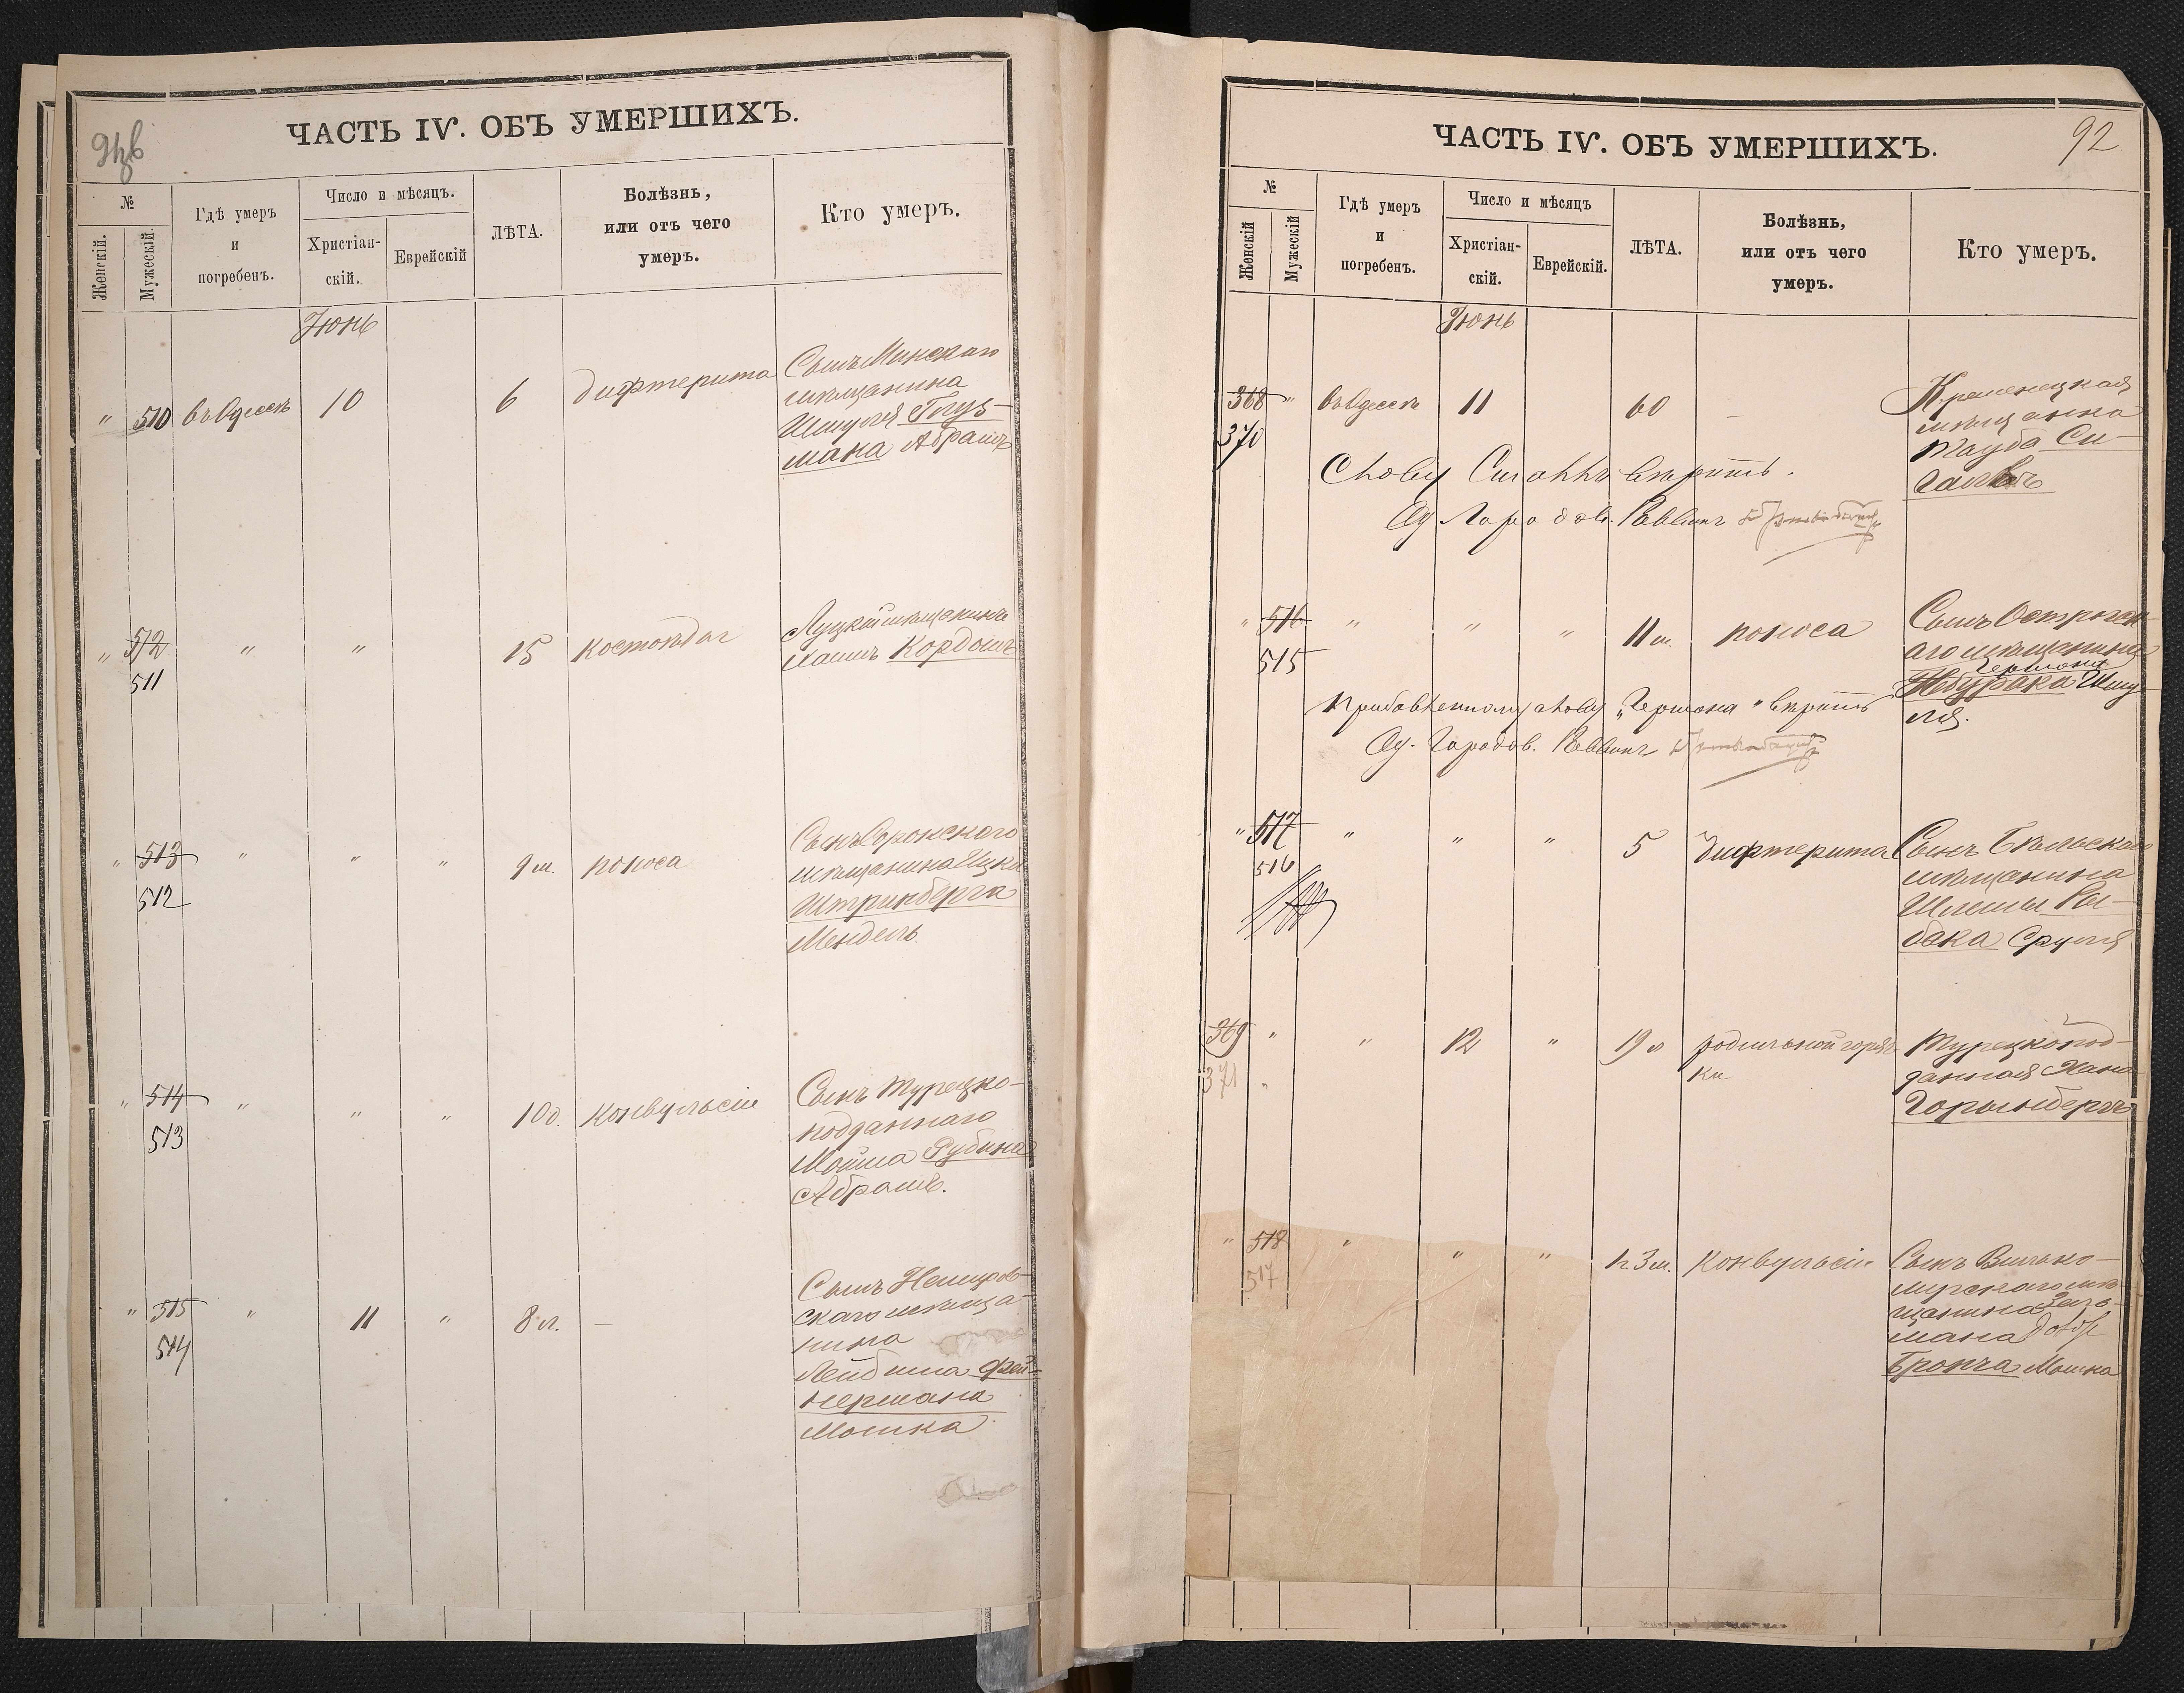 ЧАСТЬ IV. ОБЪ УМЕРШИХЪ.
№
Женскій.
Мужескій.
Гдѣ умеръ
и
погребенъ.
Число и мѣсяцъ.
Христіан-
скій.
Еврейскій
ЛѢТА.
Болѣзнь,
или отъ чего
умеръ.
Кто умеръ.
Іюнь
" 510 въ Одессѣ 10 6 дифтерита
Сынъ Минскаго
мѣщанина
Шмуля Глуз-
мана Абрамъ
" 512 " " 15 костоѣда
511
Луцкій мѣщанинъ
Хаимъ Кордонъ
" 513 " " " 9 м. поноса
512
Сынъ Сорокского
мѣщанина Ицки
Штринберга
Мендель
" 514 " " " 10 д. конвульсіи
513
Сынъ Турецко-
подданнаго
Мойша Рубина
Абрамъ.
" 515 " 11 " 8 л. —
514
Сынъ Немиров-
скаго мѣща-
нина
Лейбиша Фей-
нермана
Мошка
ЧАСТЬ IV. ОБЪ УМЕРШИХЪ.
92
№
Женскій
Мужескій
Гдѣ умеръ
и
погребенъ.
Число и мѣсяцъ
Христіан-
скій.
Еврейскій.
ЛѢТА.
Болѣзнь,
или отъ чего
умеръ.
Кто умеръ.
Іюнь
368 " въ Одессѣ 11 60 —
370
Кременецкая
мѣщанка
Тауба Си-
Слову вѣрить.
Од. Городов. Раввинъ
" 516 " " " 11 м. поноса
515
Сынъ Острогск-
аго мѣщанина
Гершона
Шму-
ля.
Прибавленному слову „Гершона" вѣрить
Од. Городов. Раввинъ
" 517 " " " 5 дифтерита
516
Сынъ Бѣльскаго
мѣщанина
Шлемы Ры-
бака Сруля
369 " " 12 " 19 л родильной горяч-
371 " ки
Турецкопод-
данная Хана
Горынберъ
" 518 " " " 1 г. 3 м. Конвульсіи
517
Сынъ Вилько-
мирскаго мѣ-
щанина Зель-
мана
Бронча Мошка